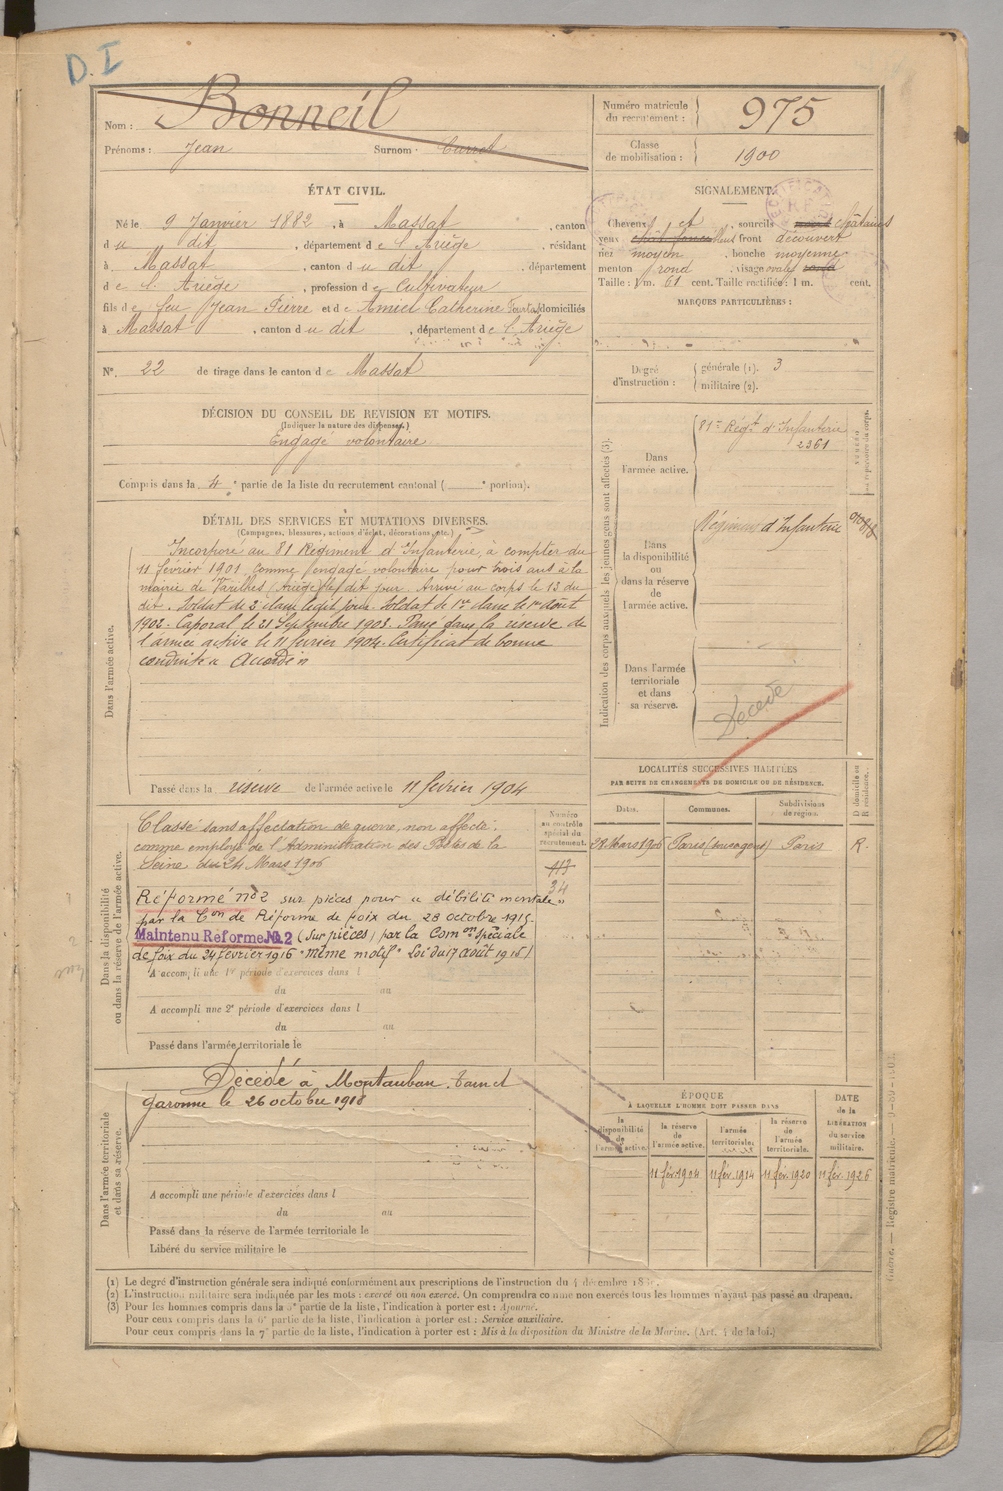 D. I
Nom : Bonneil
Prénoms : Jean Surnom :
Numéro matricule du recrutement : 975
Classe de mobilisation : 1900
ÉTAT CIVIL.
Né le 9 Janvier 1882, à Massat, canton
du dit, département de l'Ariège, résidant
à Massat, canton du dit, département
de l'Ariège, profession de Cultivateur
fils de feu Jean Pierre et de Amiel Catherine domiciliés
à Massat, canton du dit, département de l'Ariège
N° 22 de tirage dans le canton de Massat
SIGNALEMENT.
Cheveux et, sourcils châtains
yeux front découvert
nez moyen, bouche moyenne
menton rond, visage ovale
Taille : 1 m. 61 cent. Taille rectifiée : 1 m. cent.
MARQUES PARTICULIÈRES :
Degré d'instruction : générale (1). 3
militaire (2).
DÉCISION DU CONSEIL DE REVISION ET MOTIFS.
(Indiquer la nature des dispenses.)
Engagé volontaire
Compris dans la 4e partie de la liste du recrutement cantonal ( e portion).
DÉTAIL DES SERVICES ET MUTATIONS DIVERSES.
(Campagnes, blessures, actions d'éclat, décorations, etc.)
Dans l'armée active.
Incorporé au 81 Régiment d'Infanterie, à compter du
11 février 1901 comme engagé volontaire pour trois ans à la
mairie de Varilhes (Ariège) le dit jour. Arrivé au corps le 13 du
dit. Soldat de 2e classe le dit jour. Soldat de 1re classe le 1er Août
1902. Caporal le 21 Septembre 1903. Passé dans la réserve de
l'armée active le 11 février 1904. Certificat de bonne
conduite « Accordé »
Passé dans la réserve de l'armée active le 11 février 1904
Indication des corps auxquels les jeunes gens sont affectés (3).
Dans l'armée active.
81e Régt d'Infanterie
2361
Dans la disponibilité ou dans la réserve de l'armée active.
Régiment d'Infanterie
Dans l'armée territoriale et dans sa réserve.
Décédé
Dans la disponibilité ou dans la réserve de l'armée active.
Numéro au contrôle spécial du recrutement.
113
34
Classé sans affectation de guerre, non affecté,
comme employé de l'Administration des Postes de la
Seine du 24 Mars 1906
Réformé n° 2 sur pièces pour « débilité mentale »
par la Con de Réforme de Foix du 28 octobre 1915.
Maintenu Réforme No. 2 (sur pièces) par la Comon spéciale
de Foix du 24 février 1916 "même motif" Loi du 17 août 1915)
A accompli une 1re période d'exercices dans l
du au
A accompli une 2e période d'exercices dans l
du au
Passé dans l'armée territoriale le
LOCALITÉS SUCCESSIVES HABITÉES
PAR SUITE DE CHANGEMENTS DE DOMICILE OU DE RÉSIDENCE.
Dates. Communes. Subdivisions de région. D domicile ou R résidence.
29 Mars 1906 Paris Paris R.
Dans l'armée territoriale et dans sa réserve.
Décédé à Montauban, Tarn et
Garonne le 26 octobre 1918
A accompli une période d'exercices dans l
du au
Passé dans la réserve de l'armée territoriale le
Libéré du service militaire le
ÉPOQUE
À LAQUELLE L'HOMME DOIT PASSER DANS
la disponibilité de l'armée active.
la réserve de l'armée active.
l'armée territoriale.
la réserve de l'armée territoriale.
DATE de la LIBÉRATION du service militaire.
11 fév. 1904 11 fév. 1914 11 fév. 1920 11 fév. 1926
(1) Le degré d'instruction générale sera indiqué conformément aux prescriptions de l'instruction du 4 décembre
(2) L'instruction militaire sera indiquée par les mots : exercé ou non exercé. On comprendra comme non exercés tous les hommes n'ayant pas passé au drapeau.
(3) Pour les hommes compris dans la 5e partie de la liste, l'indication à porter est : Ajourné.
Pour ceux compris dans la 6e partie de la liste, l'indication à porter est : Service auxiliaire.
Pour ceux compris dans la 7e partie de la liste, l'indication à porter est : Mis à la disposition du Ministre de la Marine. (Art. 4 de la loi.)
Guerre. — Registre matricule.